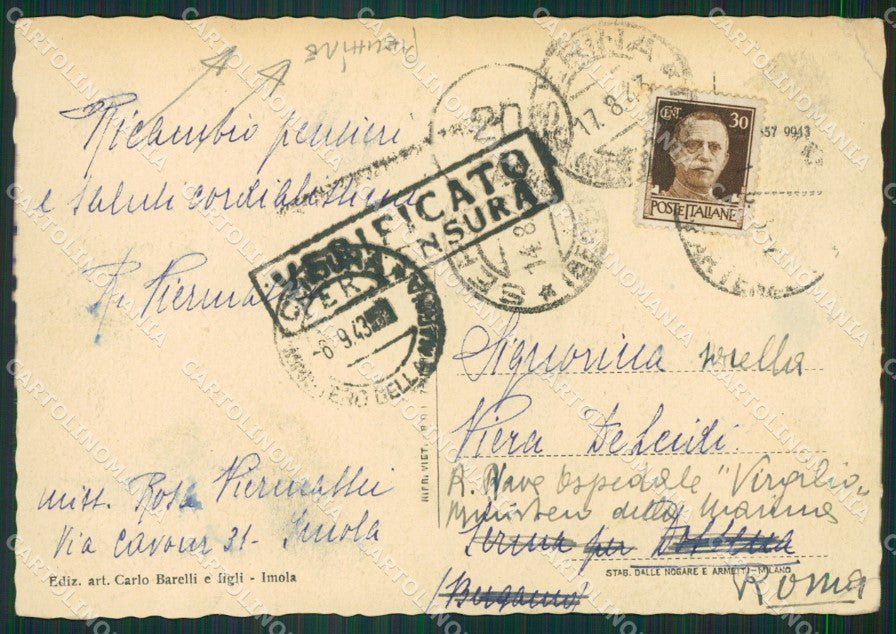 Ricambio pensieri
e saluti cordialissimi
R. Piermattei
mitt. Rosa Piermattei
Via Cavour 31 - Imola
Ediz. art. Carlo Barelli e figli - Imola
VERIFICATO
PER CENSURA
-6.9.43
MINISTERO DELLA MARINA
20
14.8
SERINA
17.8.43
CENT. 30
POSTE ITALIANE
57 9943
RIPR. VIET.
Signorina sorella
Piera
R. Nave Ospedale "Virgilio"
Ministero della Marina
Serina per
(Bergamo)
STAB. DALLE NOGARE E ARMETTI - MILANO
Roma
CARTOLINOMANIA